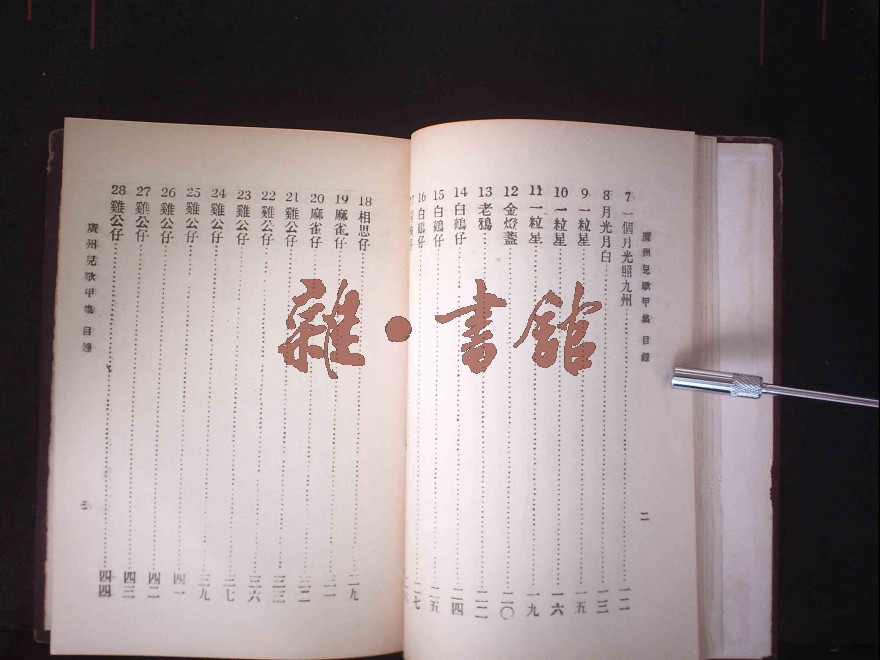 廣州兒歌甲集 目錄
7 一個月光照九州 一二
8 月光月白 一三
9 一粒星 一五
10 一粒星 一六
11 一粒星 一九
12 金燈盞 二〇
13 老鴉 二二
14 白鶴仔 二四
15 白鶴仔 二五
16 白鶴仔 二七
二
18 相思仔 二九
19 麻雀仔 三一
20 麻雀仔 三二
21 雞公仔 三三
22 雞公仔 三六
23 雞公仔 三七
24 雞公仔 三九
25 雞公仔 四一
26 雞公仔 四二
27 雞公仔 四三
28 雞公仔 四四
廣州兒歌甲集 目錄
三
雜·書館